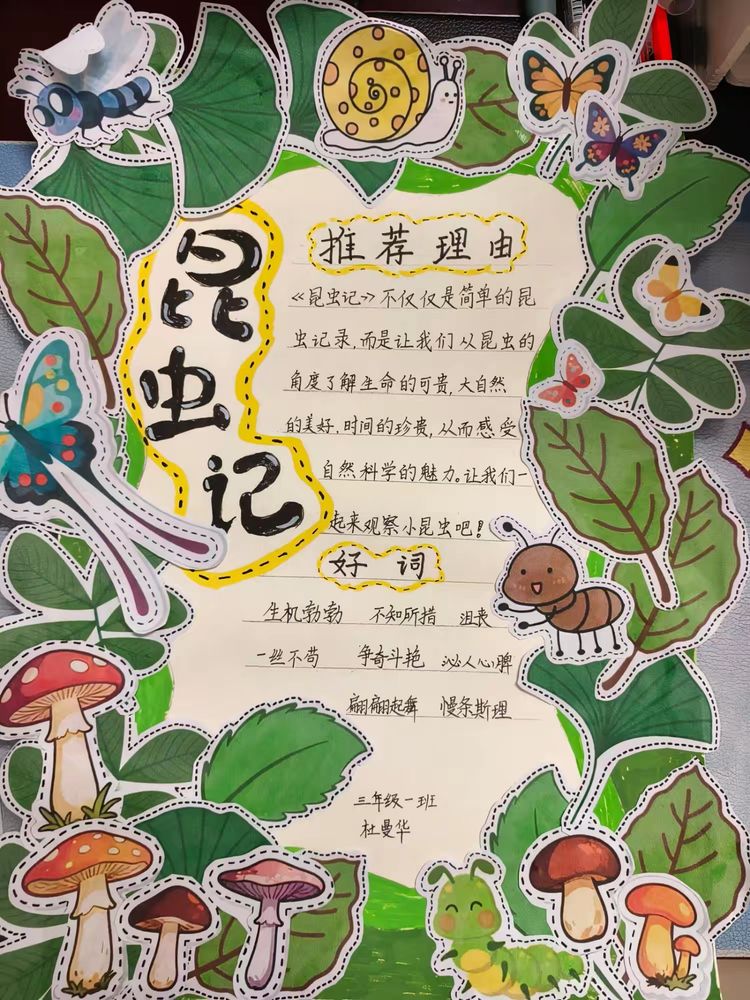 昆虫记
推荐理由
《昆虫记》不仅仅是简单的昆
虫记录,而是让我们从昆虫的
角度了解生命的可贵,大自然
的美好,时间的珍贵,从而感受
自然科学的魅力。让我们一
起来观察小昆虫吧!
好词
生机勃勃 不知所措 沮丧
一丝不苟 争奇斗艳 沁人心脾
翩翩起舞 慢条斯理
三年级一班
杜曼华